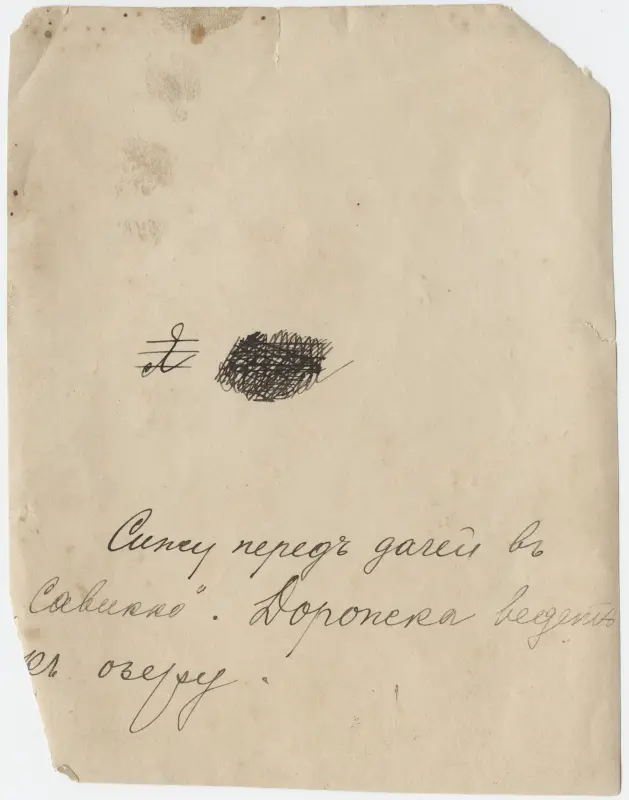 Я
Сижу передъ дачей въ
Савикко". Дорожка ведетъ
къ озеру.